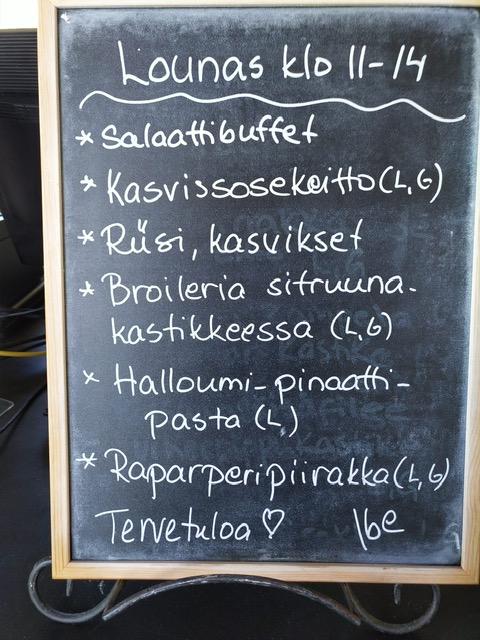 Lounas klo 11-14
* Salaattibuffet
* Kasvissosekeitto (L, G)
* Riisi, kasvikset
* Broileria sitruuna-
kastikkeessa (L, G)
* Halloumi-pinaatti-
pasta (L,)
* Raparperipiirakka (L, G)
Tervetuloa ♡ 16e